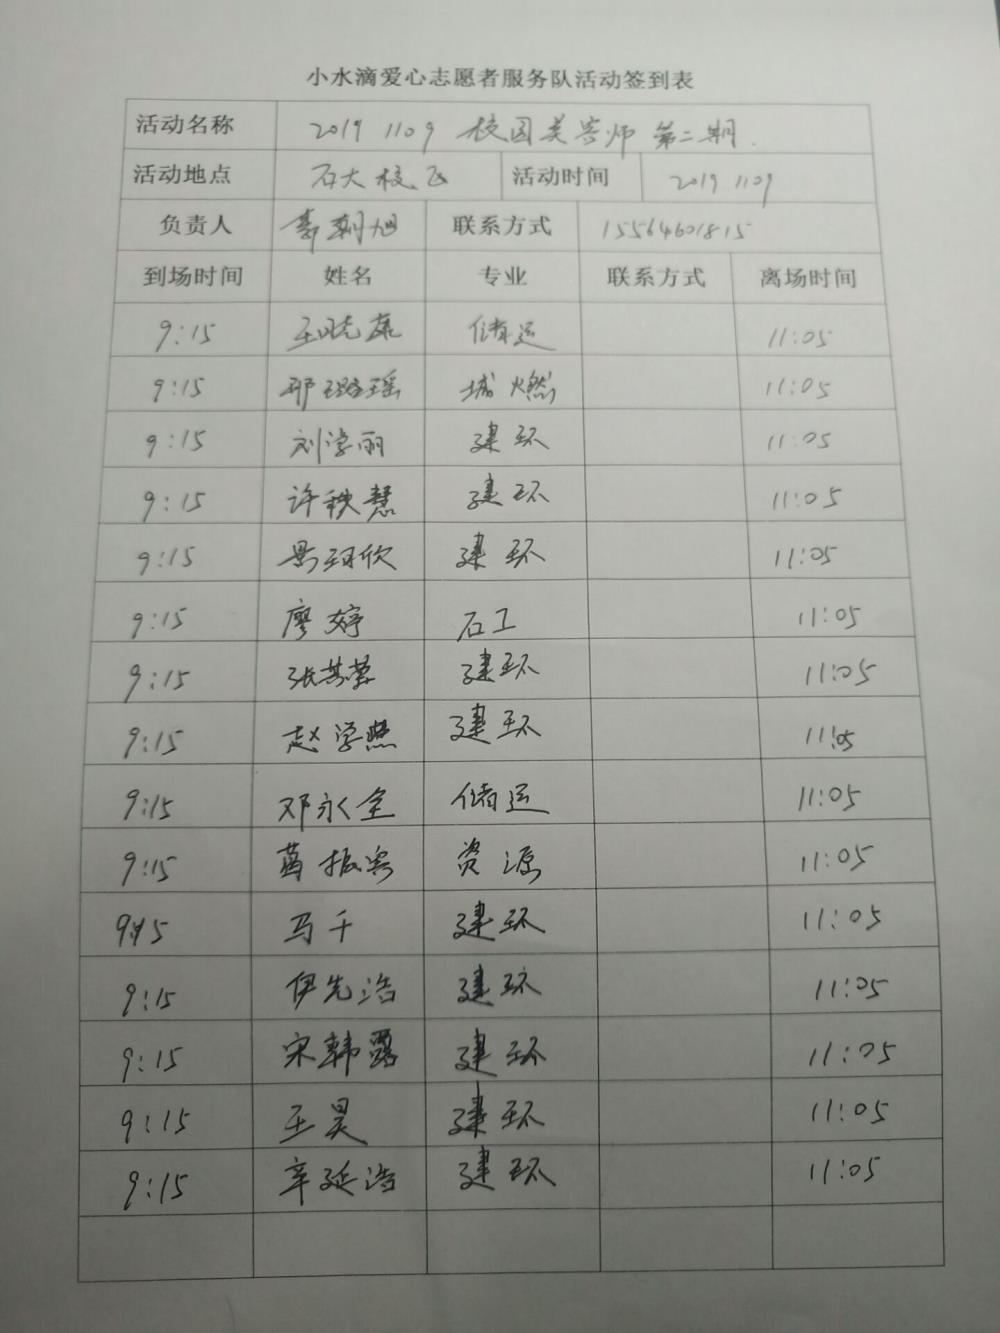 小水滴爱心志愿者服务队活动签到表
活动名称 20191109 校园美容师 第二期.
活动地点 石大校区 活动时间 20191109
负责人 郭朝旭 联系方式 15564601815
到场时间 姓名 专业 联系方式 离场时间
9:15 王晓燕 储运 11:05
9:15 邢璐瑶 城燃 11:05
9:15 刘学丽 建环 11:05
9:15 许秧慧 建环 11:05
9:15 景珂欣 建环 11:05
9:15 廖婷 石工 11:05
9:15 张其蓉 建环 11:05
9:15 赵学燕 建环 11:05
9:15 邓永全 储运 11:05
9:15 振 资源 11:05
9:15 马千 建环 11:05
9:15 伊先浩 建环 11:05
9:15 宋韩露 建环 11:05
9:15 王昊 建环 11:05
9:15 辛延浩 建环 11:05